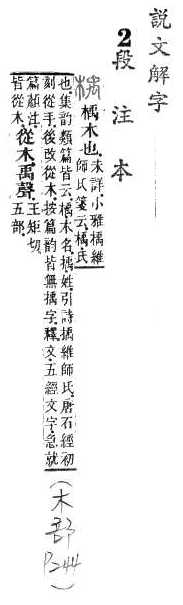 説文解字
2段注本
楀木也。未詳。小雅楀維
師氏。箋云。楀、氏
也。集韵類篇皆云。楀、木名。楀、姓。引詩楀維師氏。唐石經初
刻從手。後改從木。按篇韵皆無字。釋文、五經文字、急就
篇顏注
皆從木。從木禹聲。王矩切。
五部。
(木部
P244)